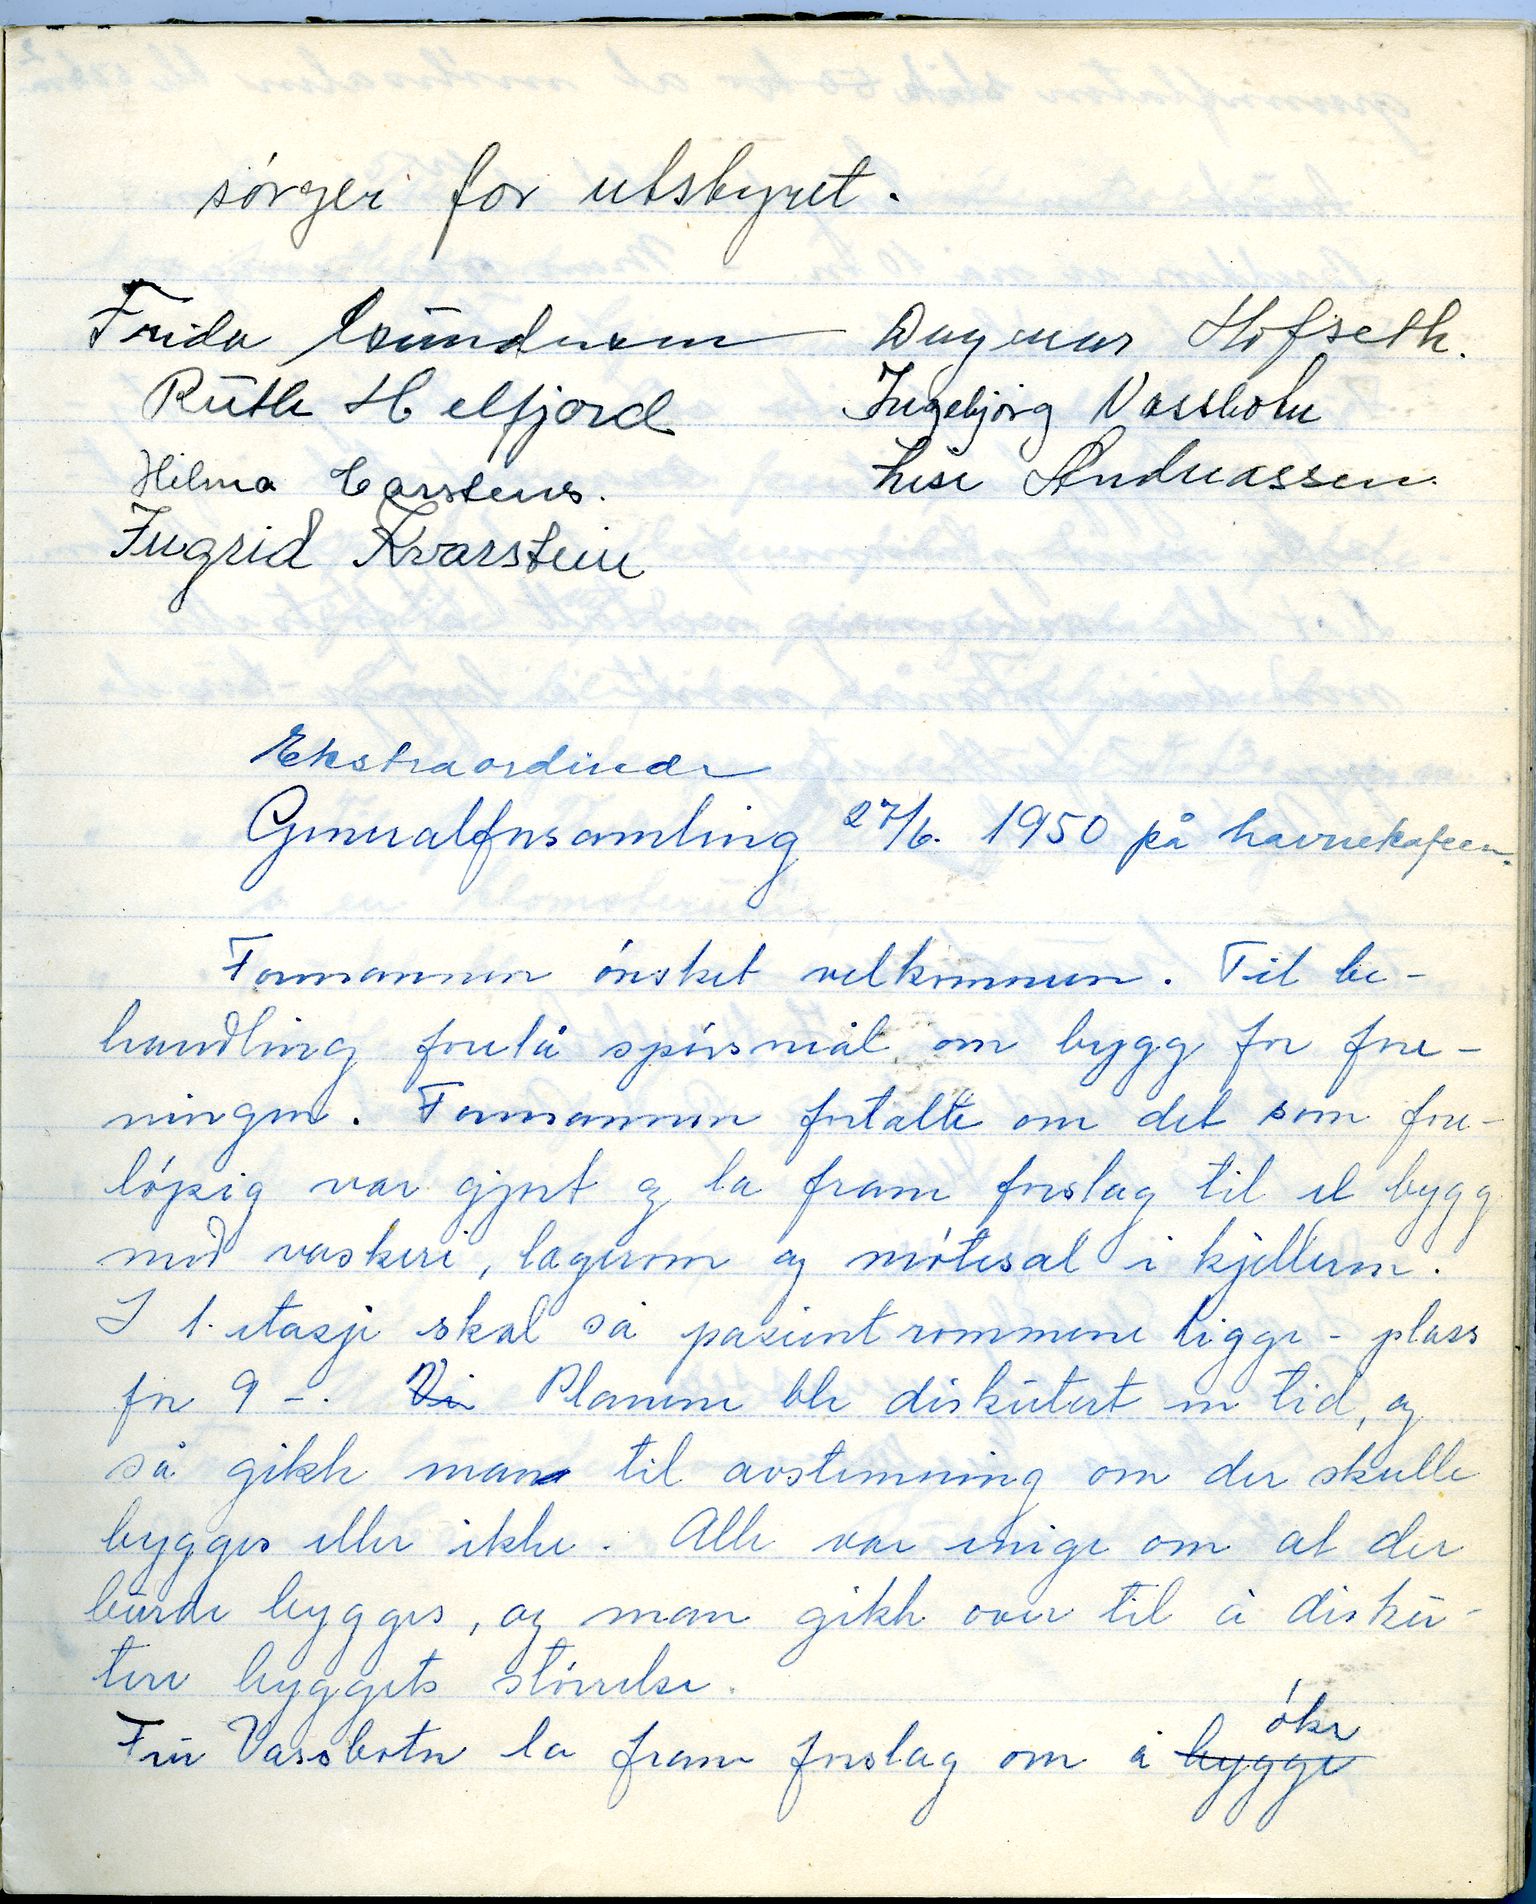 sørger for utstyret.
Frida Gundersen Dagmar Hofseth.
Ruth Helfjord Ingebjørg Vassbotn
Hilma Carstens. Lise Andreassen.
Ingrid Kvarstein
Ekstraordinær
Generalforsamling 27/6. 1950 på havnekafeen.
Formannen ønsket velkommen. Til be-
handling forelå spørsmål om bygg for fore-
ningen. Formannen fortalte om det som fore-
løpig var gjort og la fram forslag til et bygg
med vaskeri, lagerom og møtesal i kjelleren.
I 1. etasje skal så pasientrommene ligge - plass
for 9 -. Vi Planene ble diskutert en tid, og
så gikk man til avstemning om der skulle
bygges eller ikke. Alle var enige om at der
burde bygges, og man gikk over til å disku-
tere byggets størrelse.
øke
Fru Vassbotn la fram forslag om å bygge